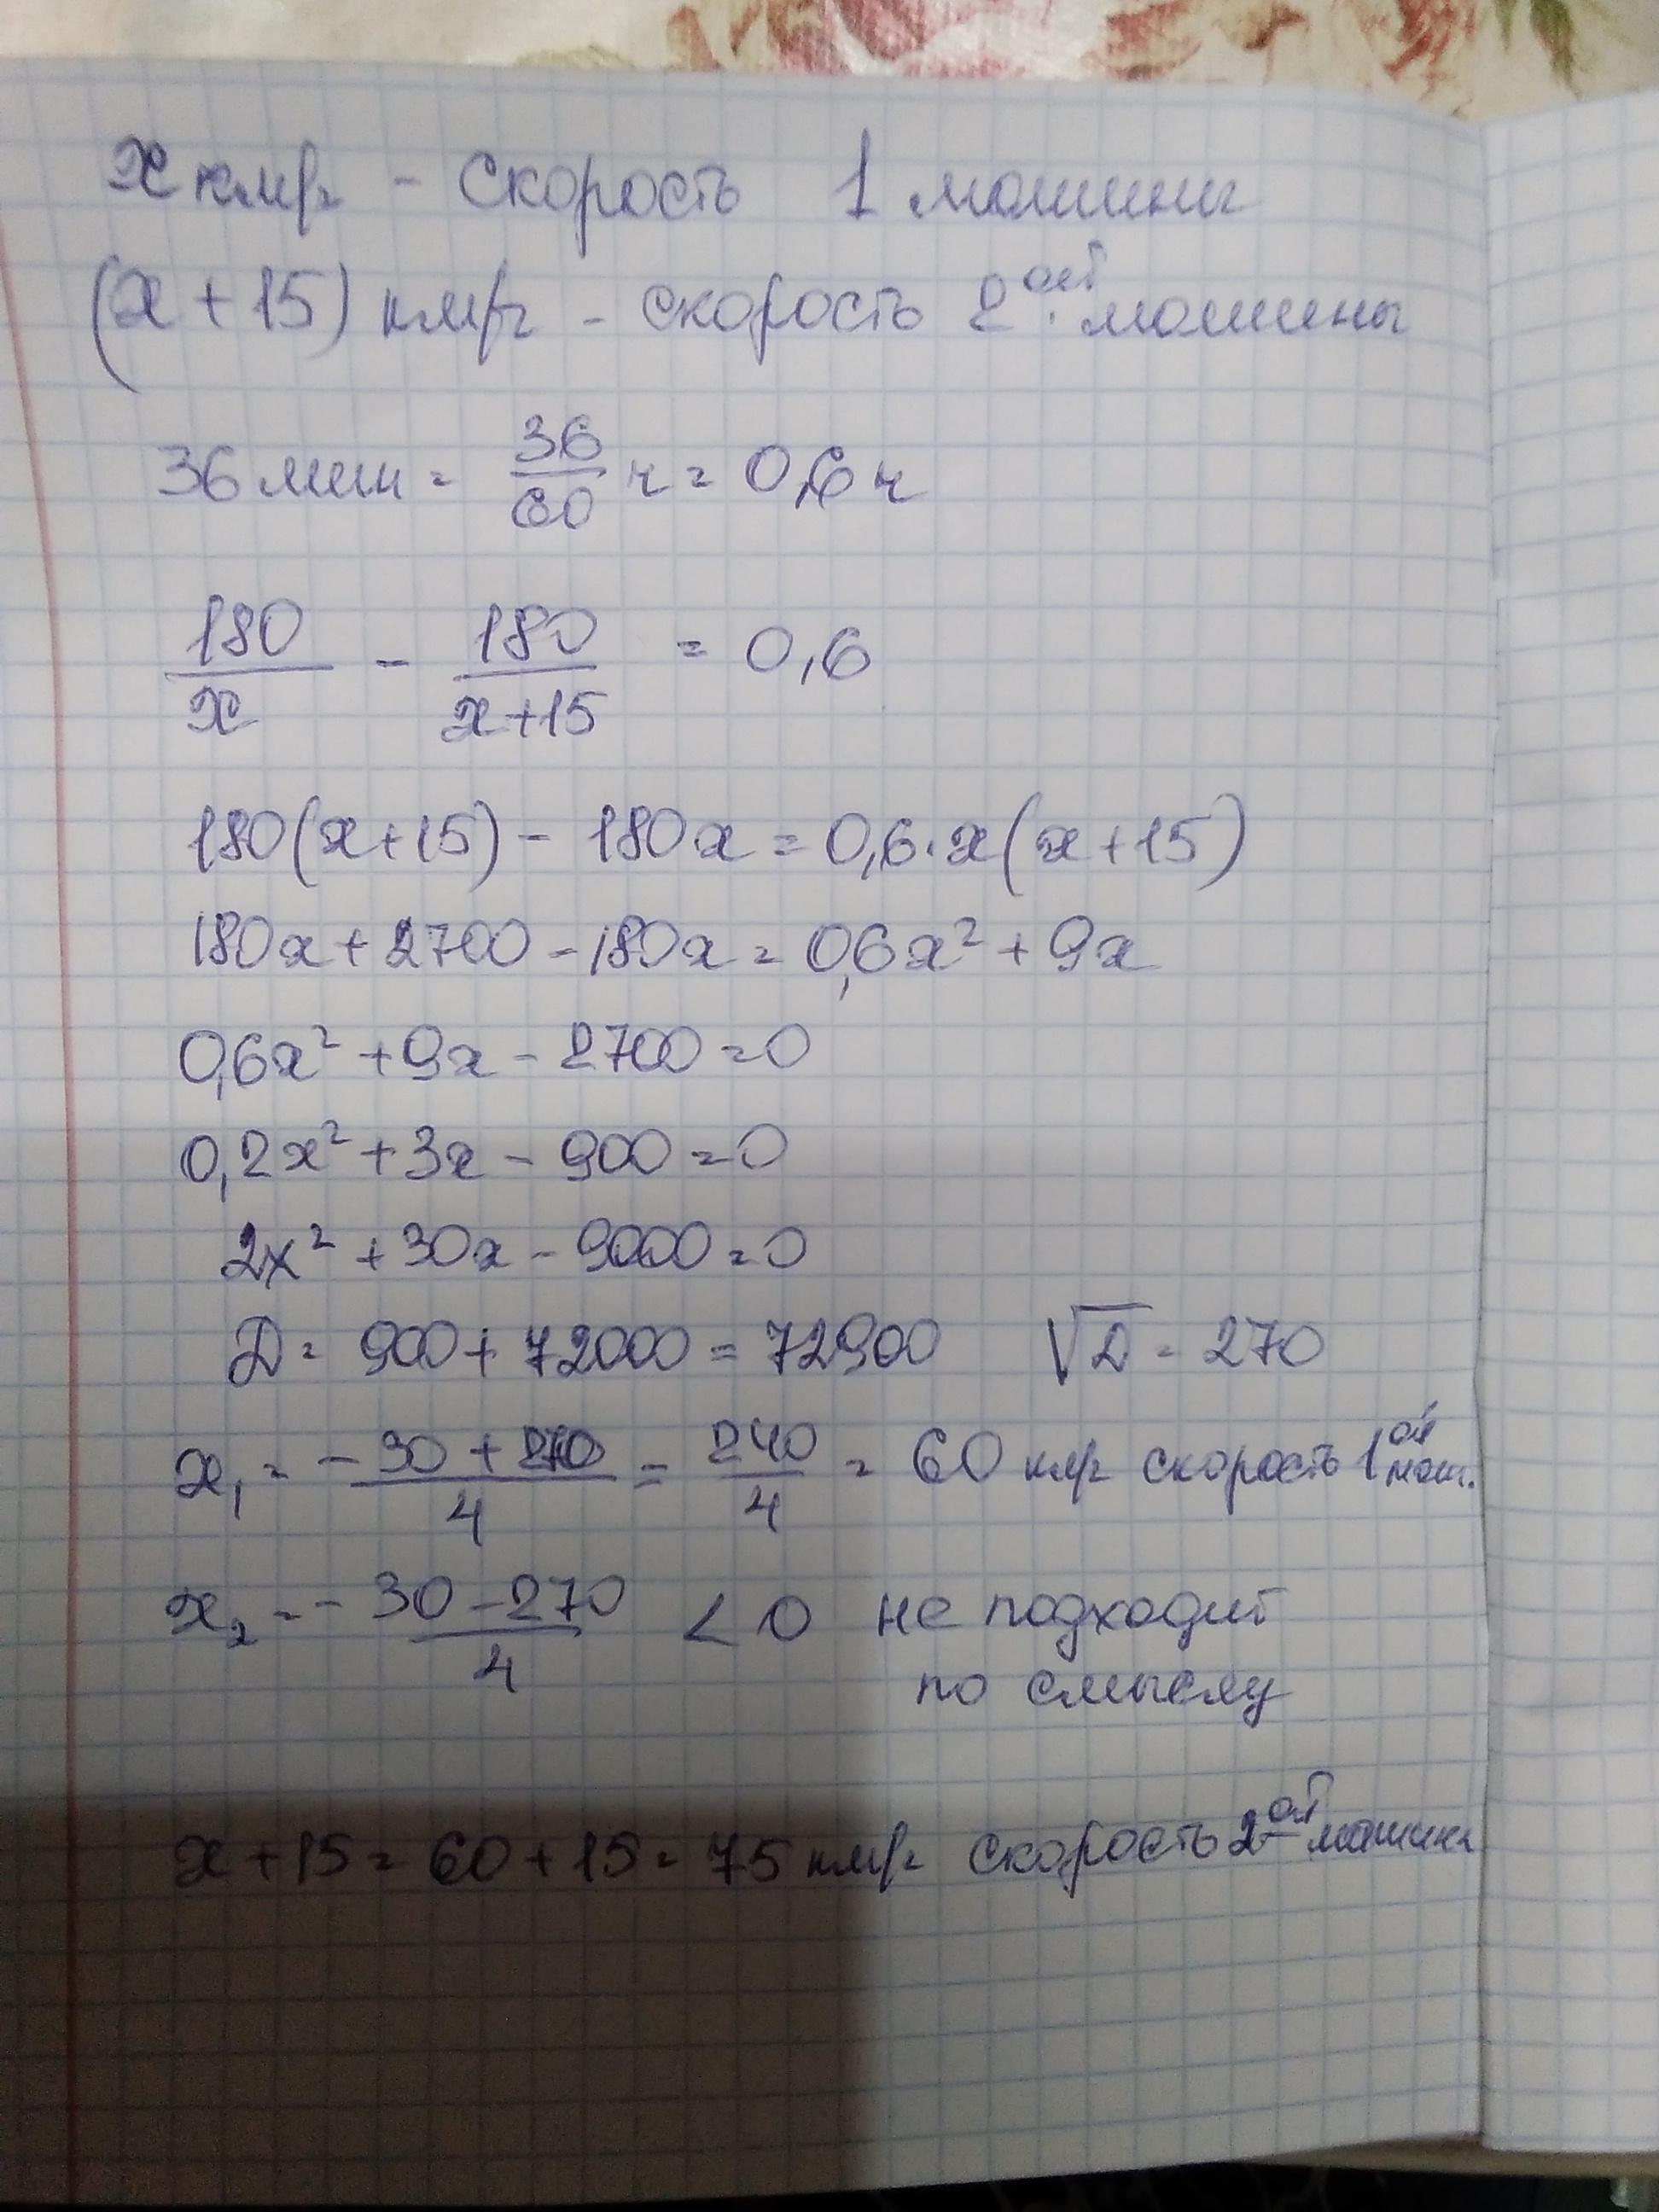 x км/ч - скорость 1 машины
(x + 15) км/ч - скорость 2ой машины
36 мин = 36/60 ч = 0,6 ч
180/x - 180/x+15 = 0,6
180(x+15) - 180x = 0,6·x(x+15)
180x + 2700 - 180x = 0,6x² + 9x
0,6x² + 9x - 2700 = 0
0,2x² + 3x - 900 = 0
2x² + 30x - 9000 = 0
D = 900 + 72000 = 72900 √D = 270
x₁ = -30 + 270/4 = 240/4 = 60 км/ч скорость 1ой маш.
x₂ = -30 - 270/4 < 0 не подходит
по смыслу
x + 15 = 60 + 15 = 75 км/ч скорость 2ой машины